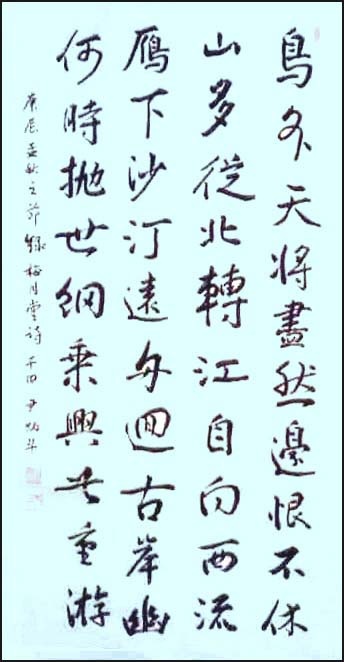 鳥外天將盡愁邊恨不休
山多從北轉江自向西流
鴈下沙汀遠舟迴古岸幽
何時抛世網乘興此重游
庚辰孟秋之節錄梅月堂詩 尹